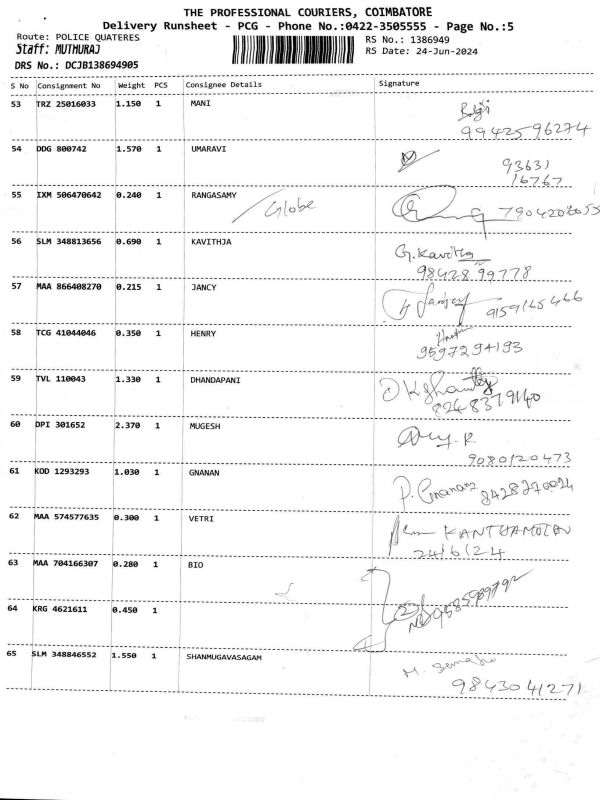 THE PROFESSIONAL COURIERS, COIMBATORE
Delivery Runsheet - PCG - Phone No.:0422-3505555 - Page No.:5
Route: POLICE QUATERES
RS No.: 1386949
Staff: MUTHURAJ
RS Date: 24-Jun-2024
DRS No.: DCJB138694905
S No Consignment No Weight PCS Consignee Details Signature
53 TRZ 25016033 1.150 1 MANI
9942596274
54 DDG 800742 1.570 1 UMARAVI
93631
16767
55 IXM 506470642 0.240 1 RANGASAMY
Globe
7904208055
56 SLM 348813656 0.690 1 KAVITHJA
G. Kavitha
98428 99778
57 MAA 866408270 0.215 1 JANCY
9159165466
58 TCG 41044046 0.350 1 HENRY
9597294193
59 TVL 110043 1.330 1 DHANDAPANI
8248379140
60 DPI 301652 2.370 1 MUGESH
9080120473
61 KOD 1293293 1.030 1 GNANAN
P. Gnanan 8428270024
62 MAA 574577635 0.300 1 VETRI
24/6/24
63 MAA 704166307 0.280 1 BIO
64 KRG 4621611 0.450 1
65 SLM 348846552 1.550 1 SHANMUGAVASAGAM
9843041271